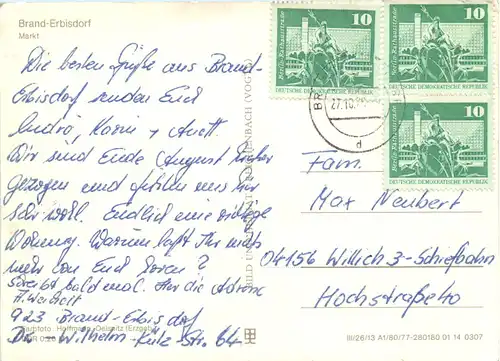 Brand-Erbisdorf
Markt
Die besten Grüße aus Brand-
Erbisdorf senden Euch
André, Karin + Anett.
Wir sind Ende August hierher
gezogen und fühlen uns hier
sehr wohl. Endlich eine richtige
Wohnung. Warum laßt Ihr nichts
mehr von Euch hören?
Schreibt bald mal. Hier die Adresse
A.
923 Brand-Erbisdorf
Dr.-Wilhelm-Külz-Str. 64
Hoffmann, Oelsnitz (Erzgeb.)
BILD UND
REICHENBACH (VOGTL)
10
DEUTSCHE DEMOKRATISCHE REPUBLIK
10
DEUTSCHE DEMOKRATISCHE REPUBLIK
10
DEUTSCHE DEMOKRATISCHE REPUBLIK
BR
27.10.
d
Fam.
Max Neubert
04156 Willich 3-Schiefbahn
Hochstraße 40
III/26/13 A1/80/77-280180 01 14 0307